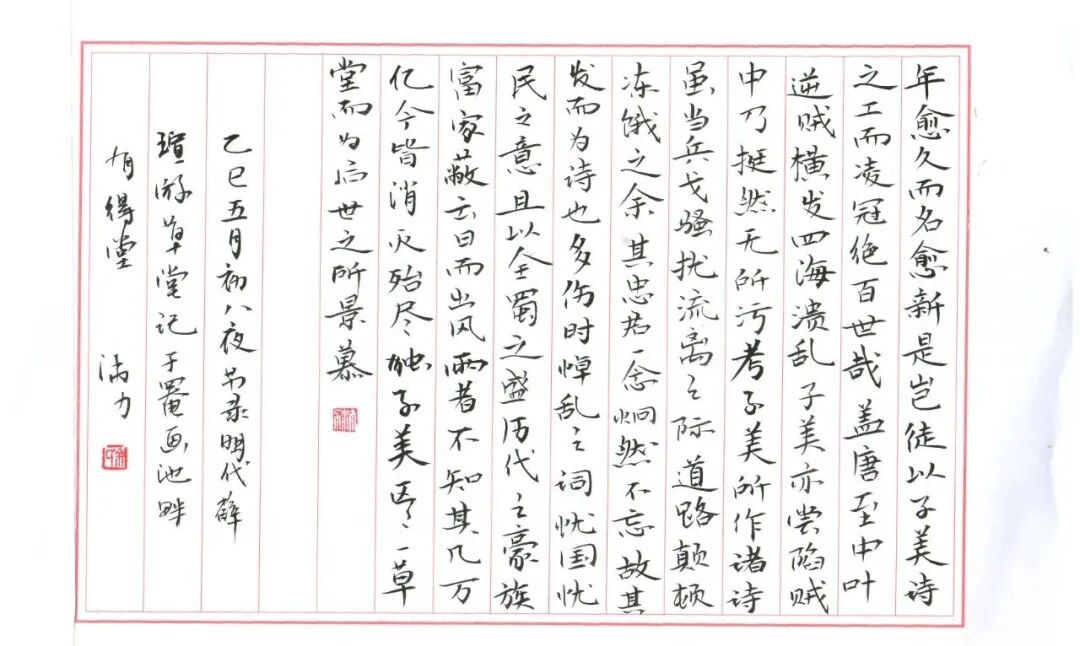 年愈久而名愈新是岂徒以子美诗
之工而凌冠绝百世哉盖唐至中叶
逆贼横发四海溃乱子美亦尝陷贼
中乃挺然无所污考子美所作诸诗
虽当兵戈骚扰流离之际道路颠顿
冻饿之余其忠君一念炯然不忘故其
发而为诗也多伤时悼乱之词忧国忧
民之意且以全蜀之盛历代之豪族
富家蔽云日而出风雨者不知其几万
亿今皆消灭殆尽独子美区区一草
堂而为后世之所景慕
乙巳五月初八夜节录明代薛
瑄游草堂记于罨画池畔
有得堂 沛力